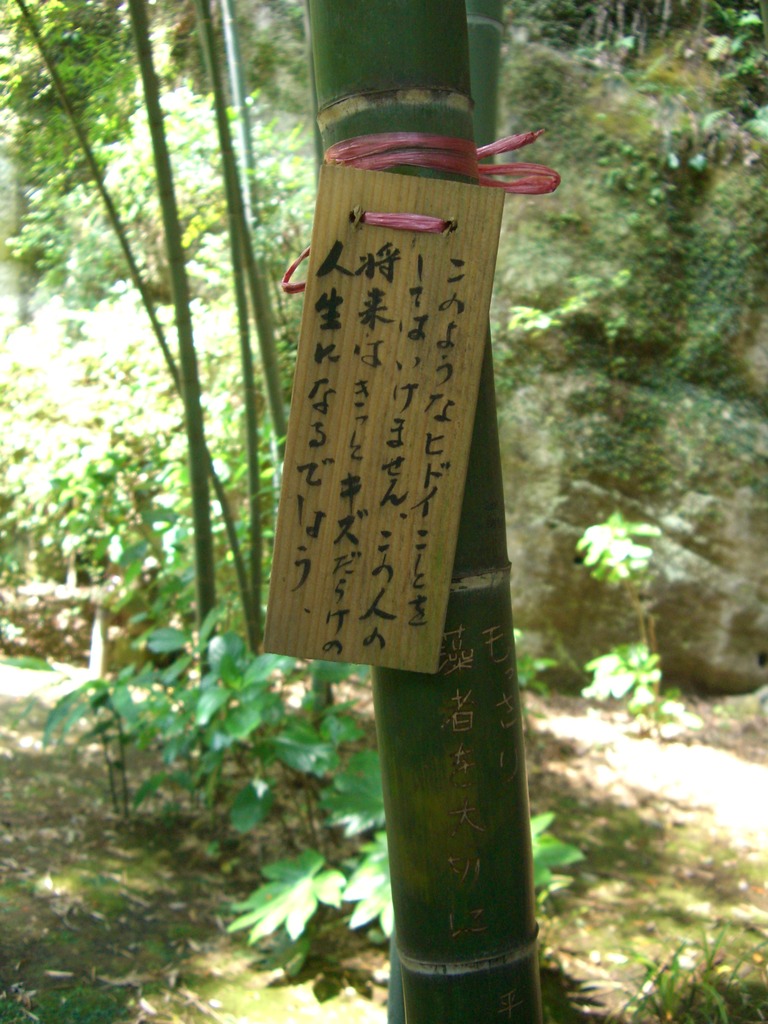 このようなヒドイことを
してはいけません、この人の
将来はきっとキズだらけの
人生になるでしょう、
もっさり
藻者を大切に
平